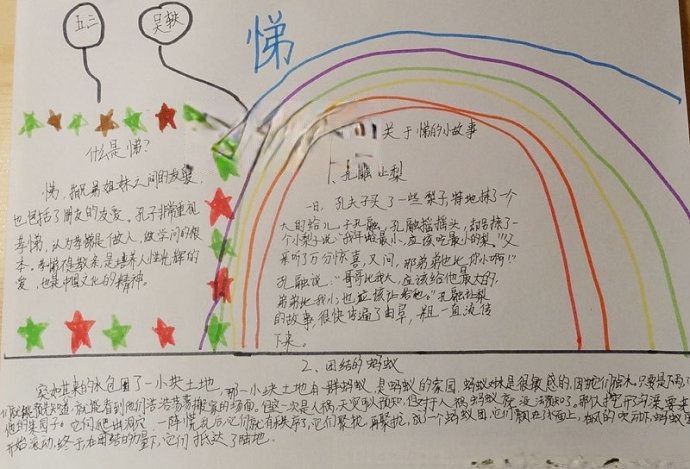 五三
吴轶
悌
什么是悌?
悌,指兄弟姐妹之间的友爱,
也包括了朋友的友爱,孔子非常重视
孝悌,认为孝悌是做人,做学问的根
本。孝悌是教亲是培养人性光辉的
爱,也是中国文化的精神。
关于悌的小故事
1、孔融让梨
一日,孔夫子买了一些梨子,特地拣了一个
大的给儿子孔融,孔融摇摇头,却另拣了一
个小梨子说:"我年龄最小,应该吃最小的梨。"父
亲听了万分惊喜,又问,那弟弟也比你小啊!"
孔融说:"哥哥比我大,应该给他最大的,
弟弟比我小,也应该让给他。"孔融让梨
的故事,很快传遍了曲阜,一直流传
下来。
2、团结的蚂蚁
突如其来的水包围了一小块土地,那一小块土地有一群蚂蚁,是蚂蚁的家园,蚂蚁对水是很敏感的,因他们怕水。只要是下雨,
就知道,就能看到他们浩浩荡荡搬家的场面,但这一次是人祸,天灾可以预知,但对于人祸蚂蚁就没法预知了。
他们爬出洞穴,一阵慌乱后它们就有秩序了,它们聚拢,再聚拢,成了个蚂蚁团,它们飘在水面上,在风的吹动下,蚂蚁
开始滚动,终于在团结的力量下,它们抵达了陆地。